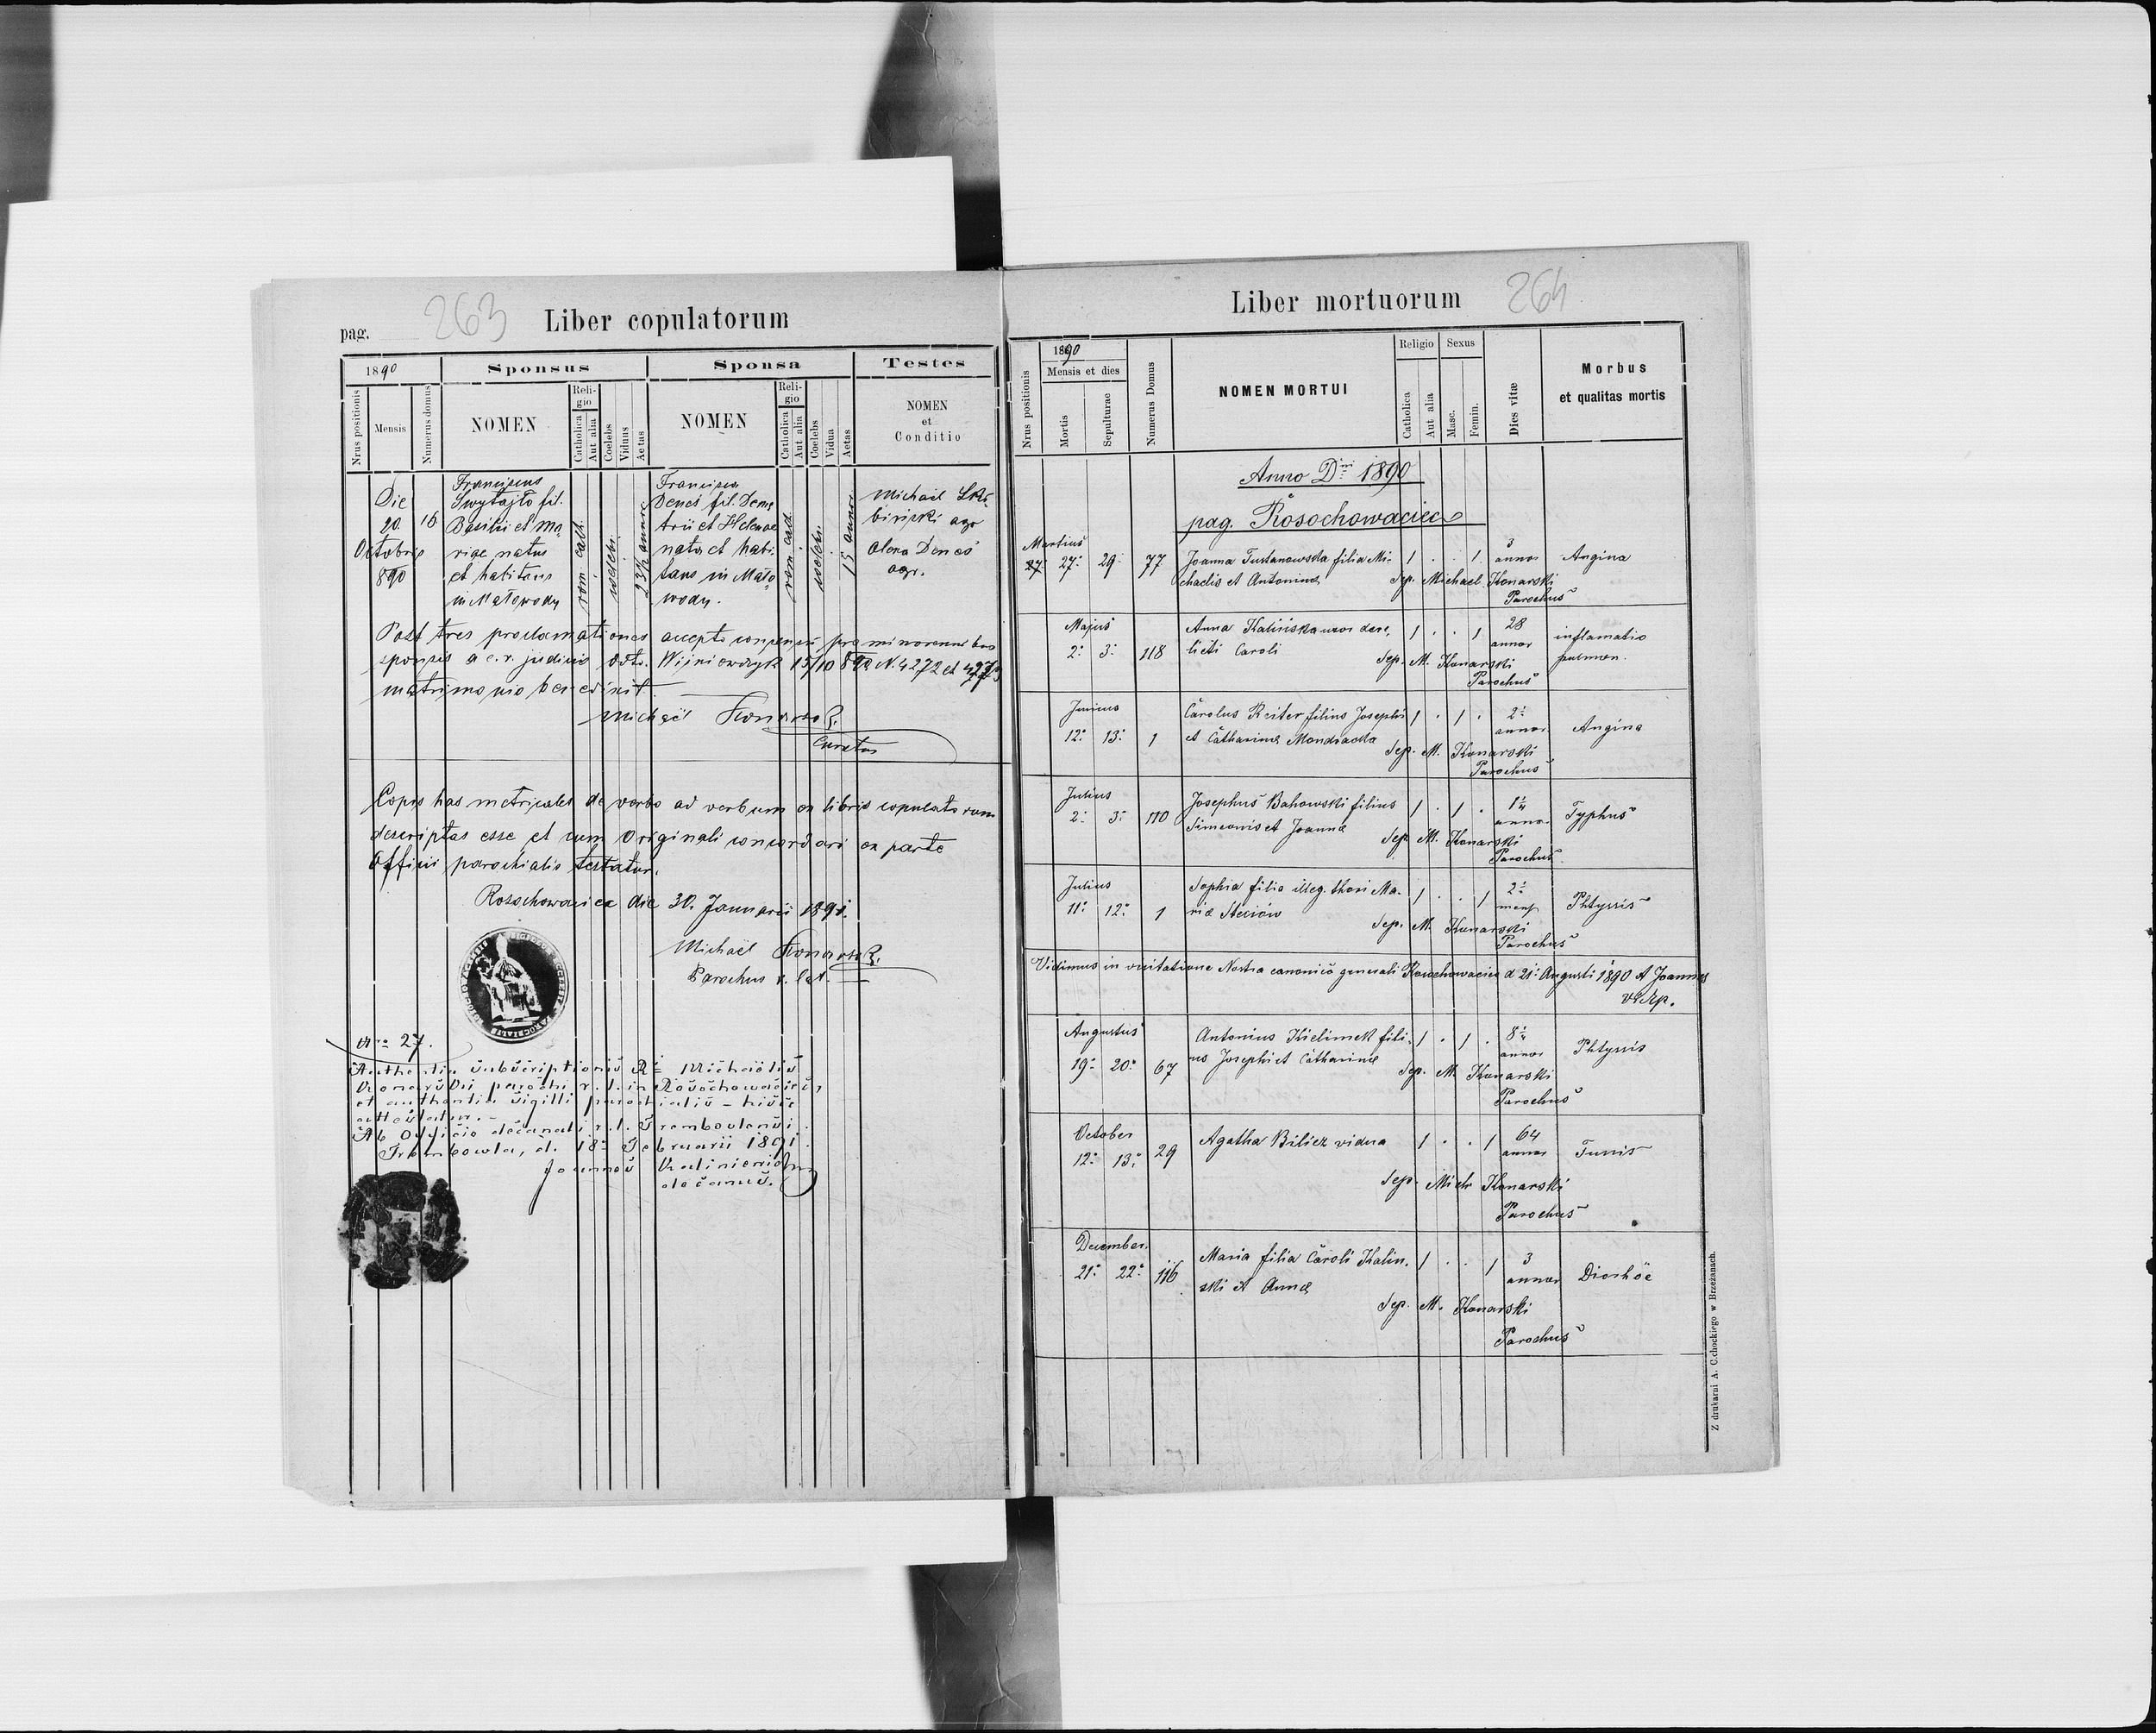 pag. 263 Liber copulatorum
1890 Sponsus Sponsa Testes
Nrus positionis Mensis Numerus domus NOMEN Religio Catholica Aut alia Coelebs Viduus Aetas NOMEN Religio Catholica Aut alia Coelebs Vidua Aetas NOMEN et Conditio
Die 20 Octobris 890
16
Franciscus
Swytajło fil.
Basilii et Ma
riae natus
et habitans
in Małowody
rom. cath.
coelebs.
23½ annor
Francisca
Denes fil. Deme
trii et Helenae
nata et habi
tans in Mało
wody.
rom. cath.
coelebs.
19 annor
Michael Ski
binski agr
Olena Denes
agr.
Post tres proclamationes accepto consensu pro minorennibus
sponsis a c. r. judicio dto. Wiśniowczyk 15/10 890 N. 4272 et 4273
matrimonio benedixit.
Michael Konarski
Curatus
Copias has metricales de verbo ad verbum ex libris copulatorum
descriptas esse et cum originali concordari ex parte
Officii parochialis testatur.
Rosochowaciec die 30. Januarii 1891.
Michaël Konarski
Parochus r. lat.
Nro 27.
Authentia subscriptionis Rdi Michaëlis
Konarski parochi r. l. in Rosochowaciec,
et authentia sigilli parochialis – hisce
attestatur. –
Ab Officio decanali r. l. Trembovlensi
Trembowla, d. 18 Februarii 1891.
Joannes Kaliniewicz
decanus.
Liber mortuorum 264
Nrus positionis 1890 Mensis et dies Mortis Sepulturae Numerus Domus NOMEN MORTUI Religio Catholica Aut alia Sexus Masc. Femin. Dies vitæ Morbus et qualitas mortis
Anno Dni 1890
pag. Rosochowaciec
Martius
27. 27. 29. 77 Joanna Tustanowska filia Mi- 1 . . 1 3 annor Angina
chaelis et Antoninæ Sep. Michael Konarski
Parochus
Majus
2. 3. 118 Anna Kalińska uxor dere, 1 . . 1 28 annor inflamatio
licti Caroli Sep. M. Konarski pulmon.
Parochus
Junius
12. 13. 1 Carolus Reiter filius Josephi 1 . 1 . 2 annor Angina
et Catharinæ Mondracka Sep. M. Konarski
Parochus
Julius
2. 3. 110 Josephus Bahowski filius 1 . 1 . 1¼ annor Typhus
Simeonis et Joannæ Sep. M. Konarski
Parochus
Julius
11. 12. 1 Sophia filia illeg. thori Ma- 1 . . 1 2 mens Phtysis
riæ Steciów Sep. M. Konarski
Parochus
Vidimus in visitatione Nostra canonica generali Rosochowaciec d 21 Augusti 1890 Joannes
Augustus
19. 20. 67 Antonius Kielimek fili- 1 . 1 . 8 annor Phtysis
us Josephi et Catharinæ Sep. M. Konarski
Parochus
October
12. 13. 29 Agatha Bilicz vidua 1 . . 1 64 annor Tussis
Sep. Mich Konarski
Parochus
December
21. 22. 116 Maria filia Caroli Kalin- 1 . . 1 3 annor Diarhöe
ski et Annæ
Sep. M. Konarski
Parochus
Z drukarni A. Cichockiego w Brzeżanach.